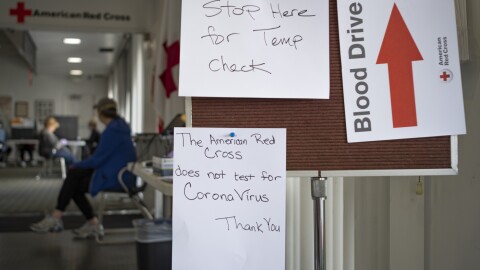 American Red Cross
Stop Here
for Temp
Check
Blood Drive
American
Red Cross
The American Red
Cross
does not test for
CoronaVirus
Thank You